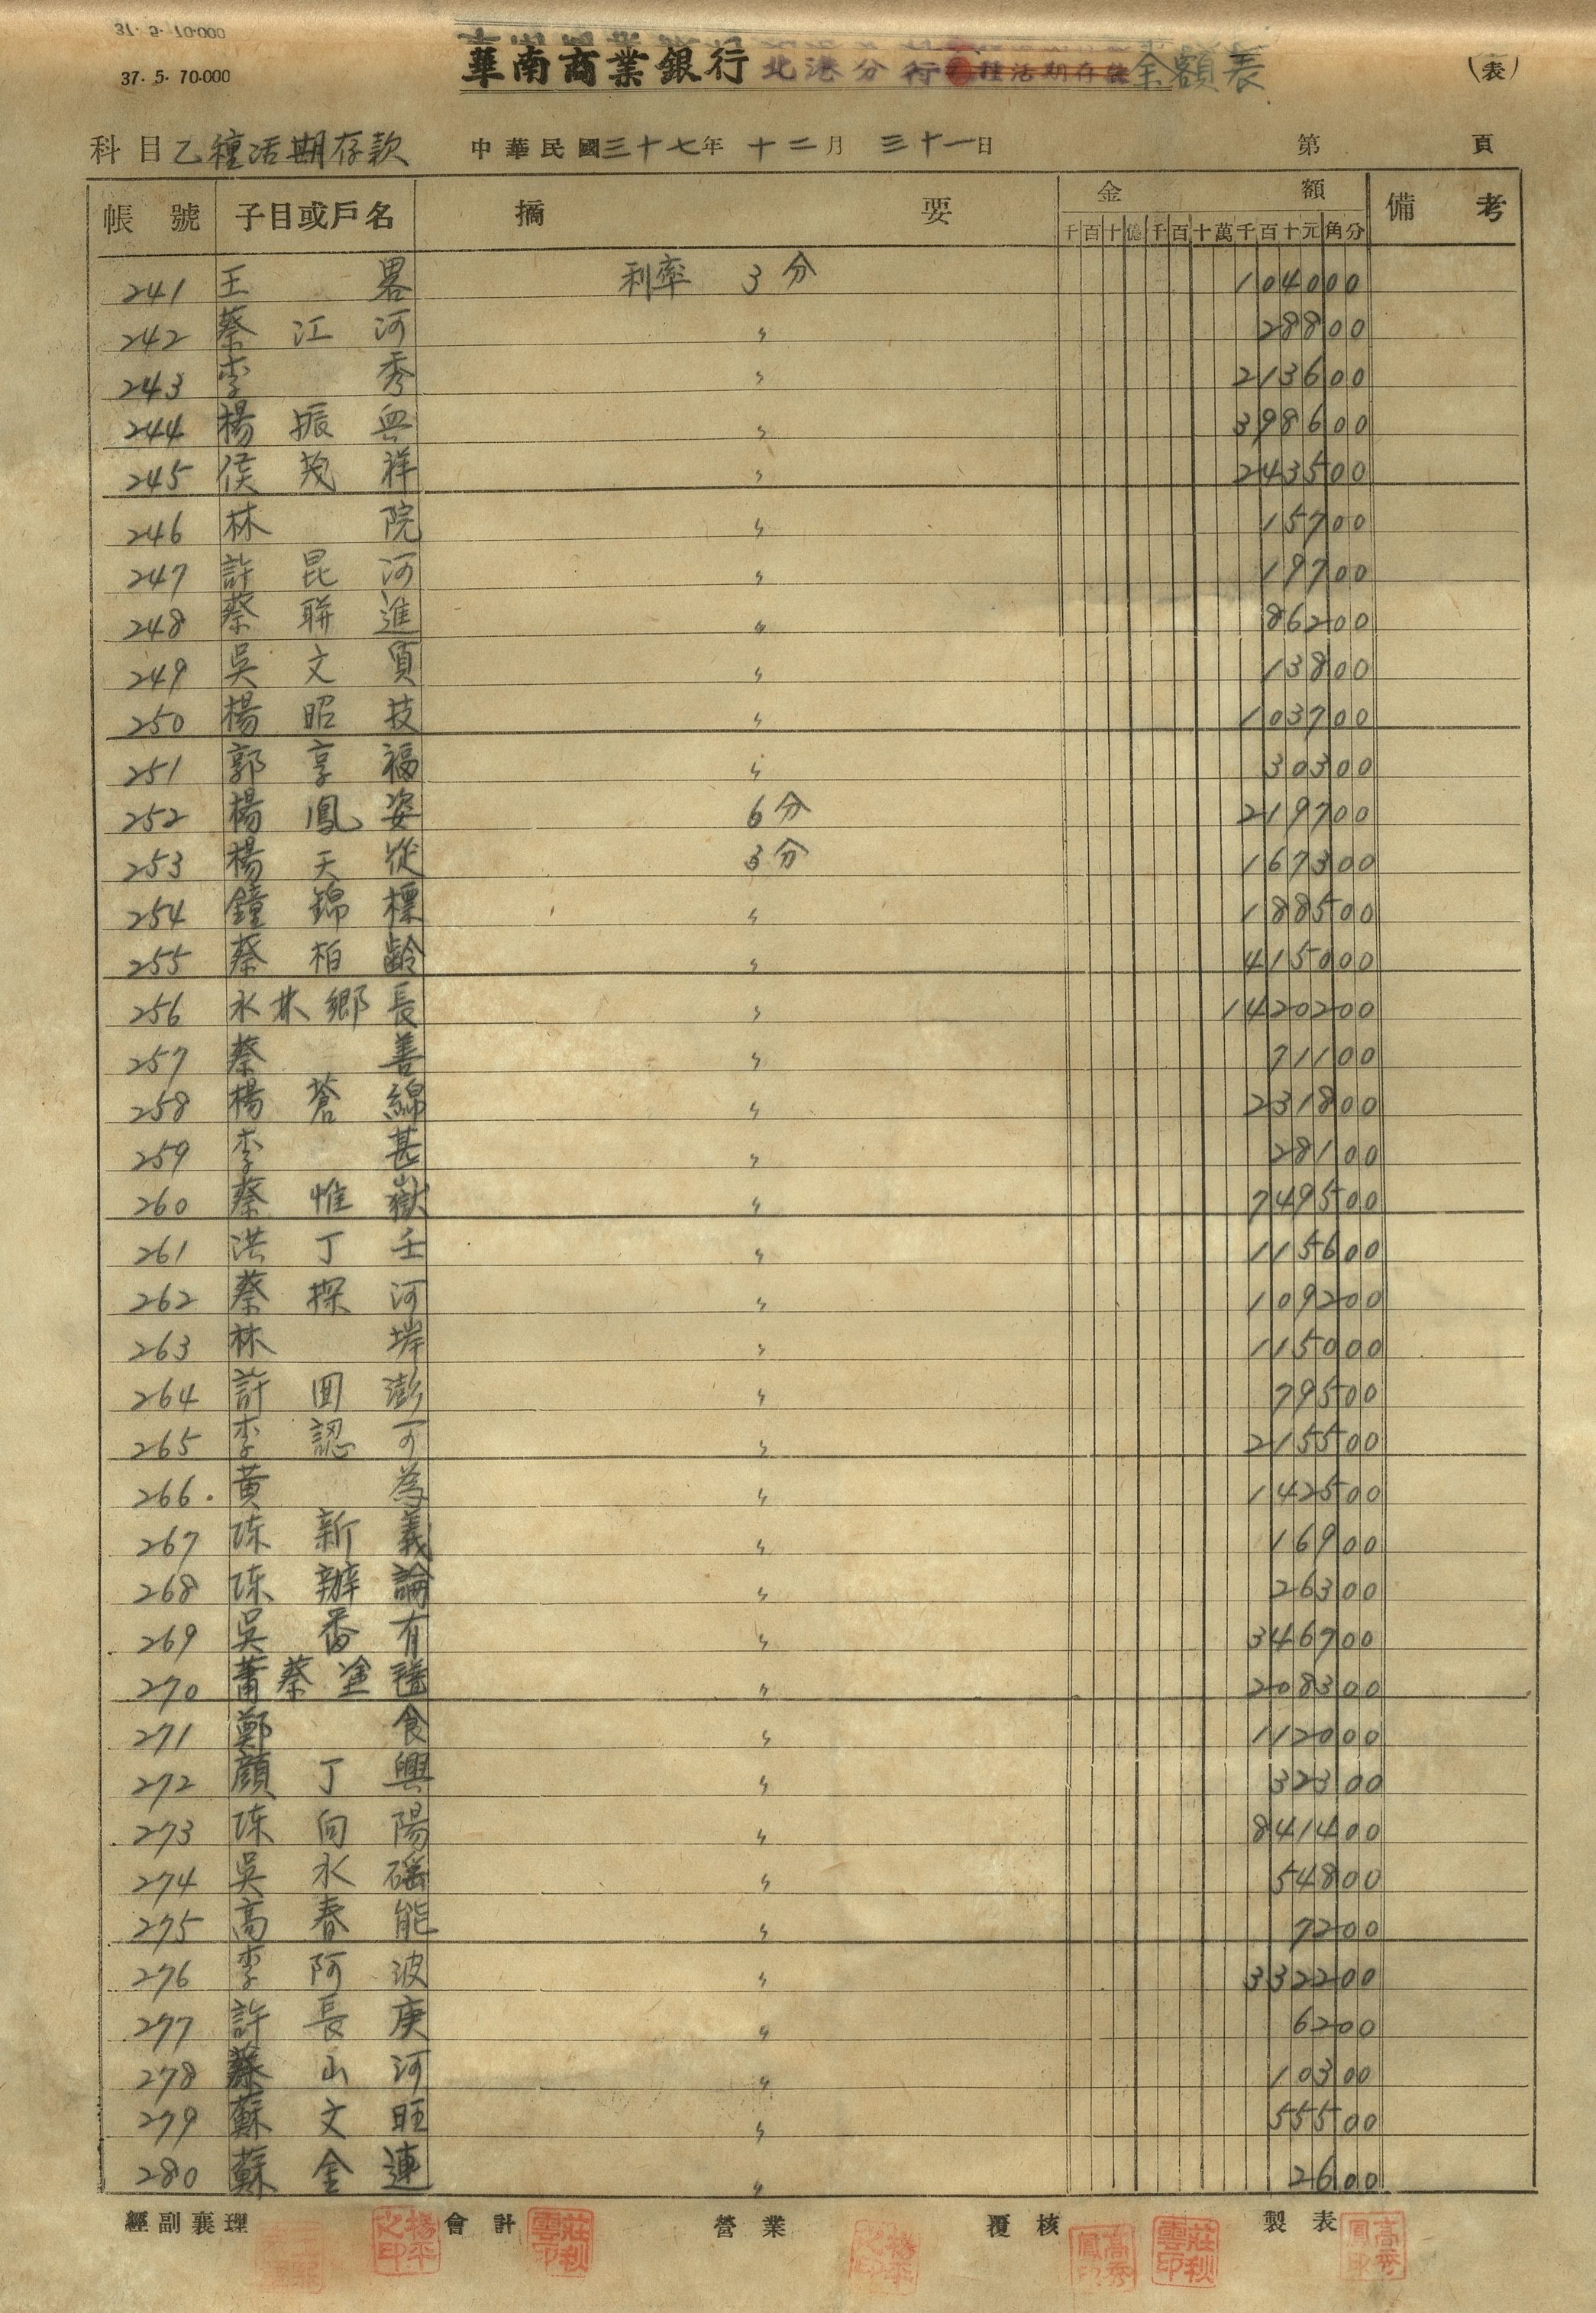 37. 5. 70.000
華南商業銀行北港分行 種活期存款余額表
(表)
科目 乙種活期存款 中華民國三十七年 十二月 三十一日 第 頁
帳號 子目或戶名 摘要 金額 備考
千百十億千百十萬千百十元角分
241 王 畧 利率 3分 104000
242 蔡江河 〃 28800
243 李 秀 〃 213600
244 楊振 〃 398600
245 侯茂祥 〃 243500
246 林 院 〃 15700
247 許昆河 〃 19700
248 蔡聯進 〃 86200
249 吳文質 〃 13800
250 楊昭技 〃 103700
251 郭享福 〃 30300
252 楊鳳姿 6分 219700
253 楊天從 3分 167300
254 鐘錦標 〃 188500
255 蔡柏齡 〃 415000
256 水林鄉長 〃 1420200
257 蔡 善 〃 71100
258 楊蒼綿 〃 231800
259 李 甚 〃 28100
260 蔡惟嶽 〃 749500
261 洪丁壬 〃 115600
262 蔡探河 〃 109200
263 林 〃 115000
264 許澎 〃 79500
265 李認可 〃 215500
266 黃 為 〃 142500
267 陈新義 〃 16900
268 陈辦論 〃 26300
269 吳番有 〃 346700
270 蕭蔡塗 〃 208300
271 鄭 食 〃 112000
272 顔丁興 〃 32300
273 陈向陽 〃 841400
274 吳永磘 〃 54800
275 高春能 〃 7200
276 李阿波 〃 332200
277 許長庚 〃 6200
278 蔡山河 〃 10300
279 蘇文旺 〃 55500
280 蘇金連 〃 2600
經副襄理 會計 營業 覆核 製表
楊平之印 莊秋雲印 楊平之印 高秀鳳印 莊秋雲印 高秀鳳印